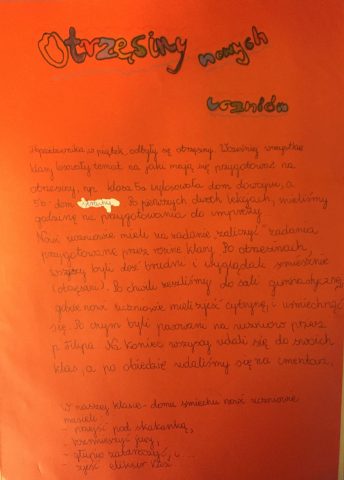 Otrzęsiny nowych
uczniów
października, w piątek, odbyły się otrzęsiny. Wcześniej wszystkie
klasy losowały temat na jaki mają się przygotować na
otrzęsiny, np. klasa 5a wylosowała dom dowcipu, a
5b - dom. Po pierwszych dwóch lekcjach, mieliśmy
godzinę na przygotowania do imprezy.
Nowi uczniowie mieli na zadanie zaliczyć zadania
przygotowane przez różne klasy. Po otrzęsinach,
wszyscy byli dość brudni i wyglądali śmiesznie
(otrzęsieni). Po chwili zeszliśmy do sali gimnastycznej,
gdzie nowi uczniowie mieli zjeść cytrynę, i uśmiechnąć
się. Po czym byli pasowani na uczniów przez
p. Filipa. Na koniec wszyscy udali się do swoich
klas, a po obiedzie udaliśmy się na cmentarz.
W naszej klasie - domu śmiechu nowi uczniowie
musieli:
- przejść pod skakanką,
- rozśmieszyć jury,
- głupio zatańczyć, i ...
- zjeść eliksir